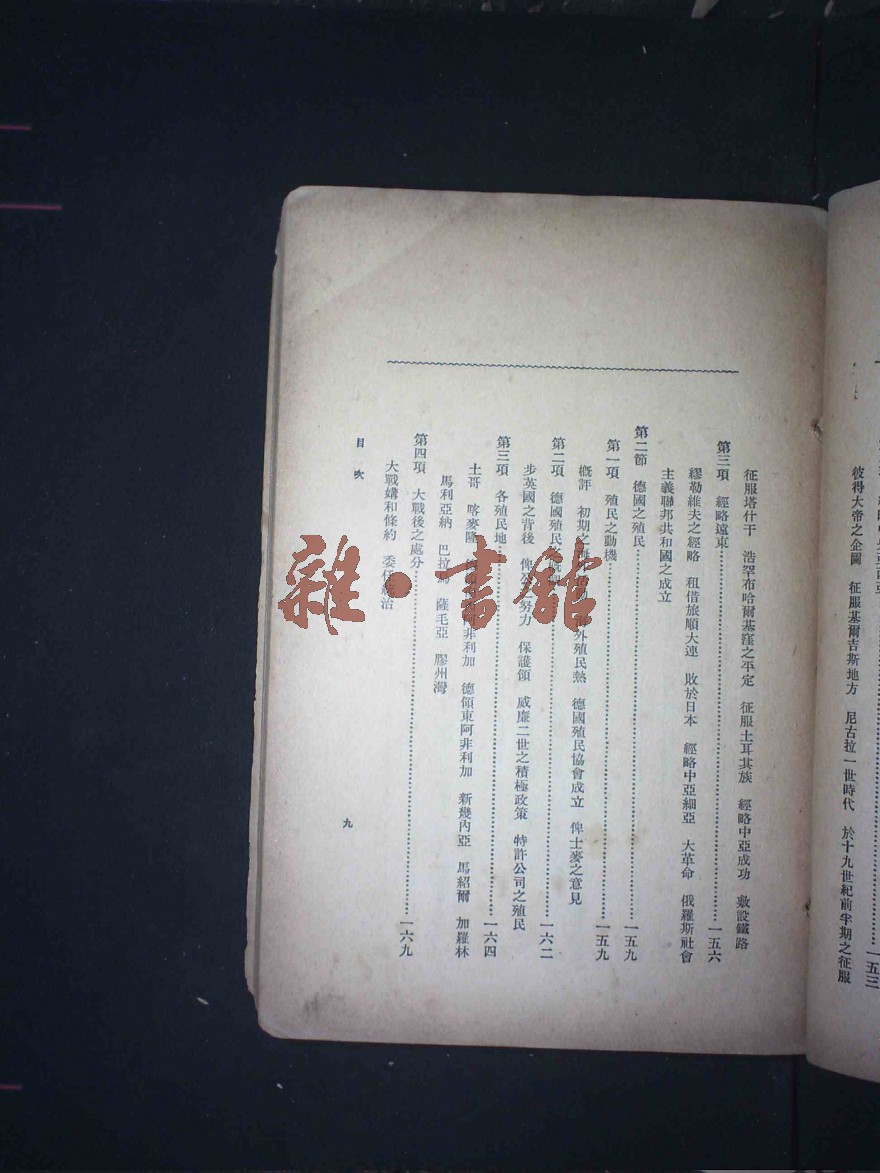 一五三
彼得大帝之企圖　征服基爾吉斯地方　尼古拉一世時代　於十九世紀前半期之征服
征服塔什干　浩罕布哈爾基窪之平定　征服土耳其族　經略中亞成功　敷設鐵路
第三項　經略遠東……一五六
繆勒維夫之經略　租借旅順大連　敗於日本　經略中亞細亞　大革命　俄羅斯社會
主義聯邦共和國之成立
第二節　德國之殖民……一五九
第一項　殖民之動機……一五九
概評　初期之　外殖民熱　德國殖民協會成立　俾士麥之意見
第二項　德國殖民……一六二
步英國之背後　俾　努力　保護領　威廉二世之積極政策　特許公司之殖民
第三項　各殖民地……一六四
土哥　喀麥隆　阿非利加　德領東阿非利加　新幾內亞　馬紹爾　加羅林
馬利亞納　巴拉　薩毛亞　膠州灣
第四項　大戰後之處分……一六九
大戰媾和條約　委任統治
目次
九
雜·書館